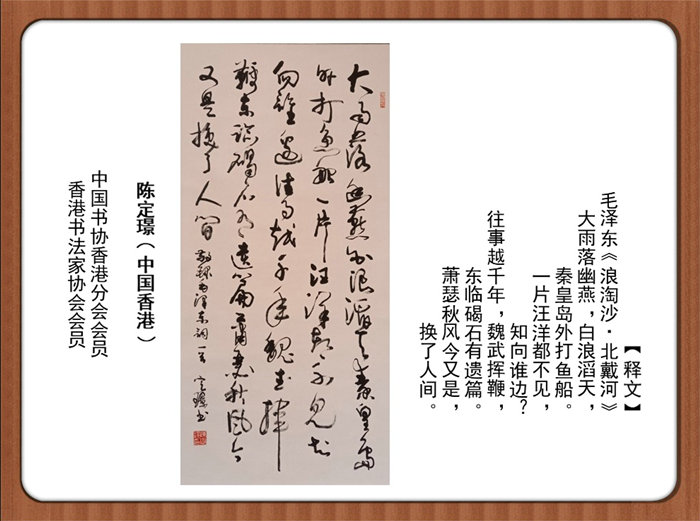 【释文】
毛泽东《浪淘沙·北戴河》
大雨落幽燕，白浪滔天，
秦皇岛外打鱼船。
一片汪洋都不见，
知向谁边？
往事越千年，魏武挥鞭，
东临碣石有遗篇。
萧瑟秋风今又是，
换了人间。
大雨落幽燕白浪滔天秦皇岛
外打鱼船一片汪洋都不见知
向谁边往事越千年魏武挥
鞭东临碣石有遗篇萧瑟秋风今
又是换了人间
敬录毛泽东词一首 定璟书
陈定璟（中国香港）
中国书协香港分会会员
香港书法家协会会员